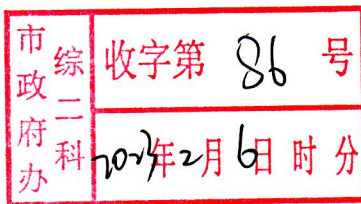 市政府办
综二科
收字第 86 号
2023年2月6日 时 分